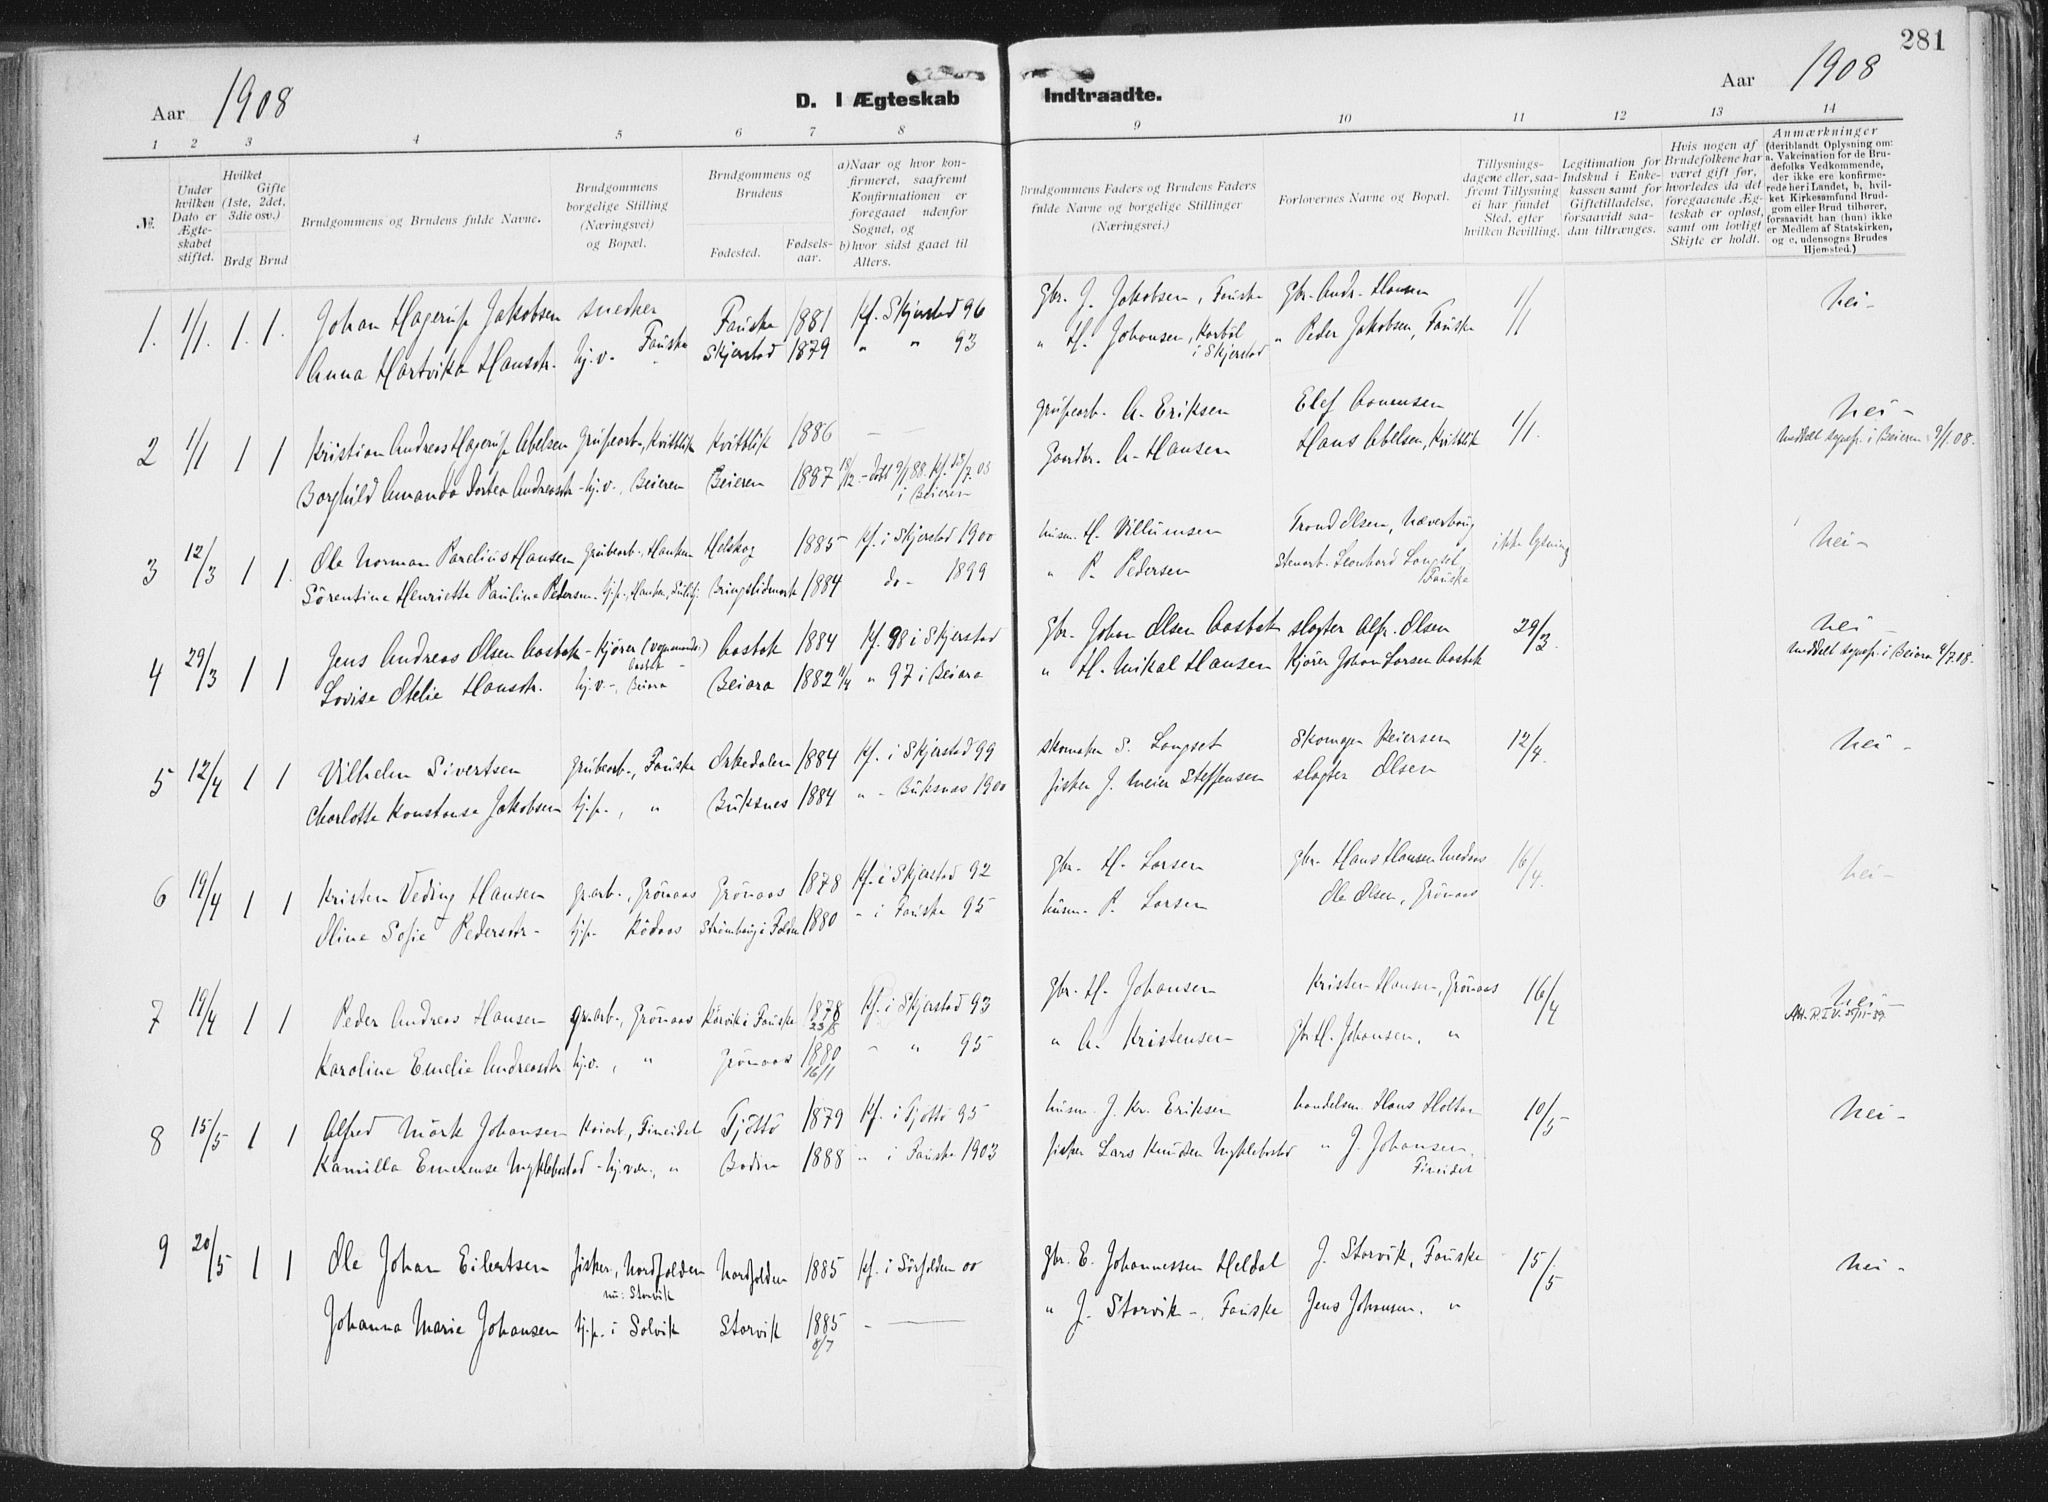 281
Aar 1908
D. I Ægteskab Indtraadte.
Aar 1908
1 2 3 4 5 6 7 8 9 10 11 12 13 14
№.
Under hvilken Dato er Ægte-skabet stiftet.
Hvilket Gifte (1ste, 2det, 3die osv.)
Brdg Brud
Brudgommens og Brudens fulde Navne.
Brudgommens borgelige Stilling (Næringsvei) og Bopæl.
Brudgommens og Brudens
Fødested.
Fødsels-aar.
a) Naar og hvor kon-firmeret, saafremt Konfirmationen er foregaaet udenfor Sognet, og
b) hvor sidst gaaet til Alters.
Brudgommens Faders og Brudens Faders fulde Navne og borgelige Stillinger (Næringsvei.)
Forlovernes Navne og Bopæl.
Tillysnings-dagene eller, saa-fremt Tillysning ei har fundet Sted, efter hvilken Bevilling.
Legitimation for Indskud i Enke-kassen samt for Giftetilladelse, forsaavidt saa-dan tiltrænges.
Hvis nogen af Brudefolkene har været gift før, hvorledes da det foregaaende Æg-teskab er opløst, samt om lovligt Skifte er holdt.
Anmærkninger (deriblandt Oplysning om: a. Vakcination for de Bru-defolks Vedkommende, der ikke ere konfirme-rede her i Landet, b, hvil-ket Kirkesamfund Brud-gom eller Brud tilhører, forsaavidt han (hun) ikke er Medlem af Statskirken, og c, udensogns Brudes Hjemsted.)
1. 1/1. 1. 1. Johan Hagerup Jakobsen snedker Fauske 1881 Kf. Skjerstad 96 Gbr. J. Jakobsen, Fauske Gbr. Andr. Hansen 1/1 nei-
Anna Hartvika Hansdtr. hj.v. Fauske Skjerstad 1879 " " 93 " H. Johansen, Korböl i Skjerstad " Peder Jakobsen, Fauske
2 1/1 1 1 Kristian Andreas Hagerup Abelsen Grubearb., Kvitblik Kvitblik 1886 - Grubearb. A. Eriksen Elef Amundsen 1/1. nei-
Borghild Amanda Dortea Andreasdtr - hj.v., Beieren Beieren 1887 18/12 - döbt 9/1 88. Kf. 13/7. 03 i Beieren Gaardbr. A. Hansen Hans Abelsen, Kvitblik meddelt sognepr. i Beieren 9/1.08.
3 12/3 1 1. Ole Norman Parelius Hansen Grubearb., Hanken Helskog 1885 Kf. i Skjerstad 1900 husm. H. Villumsen Trond Olsen, Næverhaug ikke lysning nei-
Sörentine Henriette Pauline Pedersen. tj.p., Hanken, Sulitj: Bringslimark 1884 do - 1899 " P. Pedersen Stenarb. Leonhard Langset, Fauske
4 29/3 1 1 Jens Andreas Olsen Aasbak - Kjörer (vognmand.) Aasbak Aasbak 1884 Kf. 98 i Skjerstad Gbr. Johan Olsen Aasbak slagter Alfr. Olsen 29/3. nei-
Lovise Otelie Hansdtr. hj.v.-, Beiara Beiara 1882 11/4 " 97 i Beiara " H. Mikal Hansen Kjörer Johan Larsen Aasbak meddelt sognepr. i Beiara 4/7.08.
5 12/4 1 1 Vilhelm Sivertsen Grubearb., Fauske Orkedalen 1884 Kf. i Skjerstad 99 skomaker S. Langset Skomager Beiersen 12/4. nei-
Charlotte Konstanse Jakobsen tj.p., " Buksnes 1884 " - Buksnes 1900 fisker J. Meier Steffensen slagter Olsen
6 19/4 1 1 Kristen Veding Hansen gr.arb., Grönaas Grönaas 1878 Kf. i Skjerstad 92 Gbr. H. Larsen Gbr. Hans Hansen Medaas 16/4. nei-
Oline Sofie Pedersdtr- tj.p. Rödaas Strömhaug i Folden 1880 " i Fauske 95 husm. P. Larsen Ole Olsen, Grönaas
7 19/4 1 1 Peder Andreas Hansen gr.arb., Grönaas Körvik i Fauske 1878 23/8 Kf. i Skjerstad 93 Gbr. H. Johansen Kristen Hansen, Grönaas 16/4 nei-
Karoline Emelie Andreasdtr hj.v., " Grönaas 1880 16/11 " " 95 " A. Kristensen Gbr. H. Johansen, "
8 15/5 1 1 Alfred Mörk Johansen Kaiarb, Fineidet Tjöttö 1879 Kf. i Tjöttö 95 husm. J. Kr. Eriksen handelsm. Hans Holtan 10/5 nei-
Kamilla Emerense Myklebostad - hj.vær., " Bodin 1888 " i Fauske 1903 fisker Lars Knudsen Myklebostad " J. Johansen, Fineidet
9 20/5 1 1 Ole Johan Eilertsen fisker, Nordfolden nu: Storvik Nordfolden 1885 Kf. i Sörfolden 00 Gbr. E. Johannessen Heldal J. Storvik, Fauske 15/5 nei-
Johanna Marie Johansen tj.p. i Solvik Storvik 1885 8/7 - " J. Storvik -, Fauske Jens Johansen. "